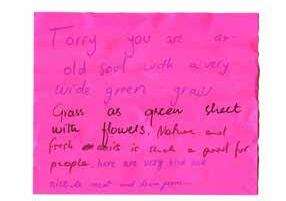 Torry you are an
old soul with a very
wide green
Grass as green sheet
with flowers. Nature and
fresh is such a good for
people. here are very kind and
nice to meet and